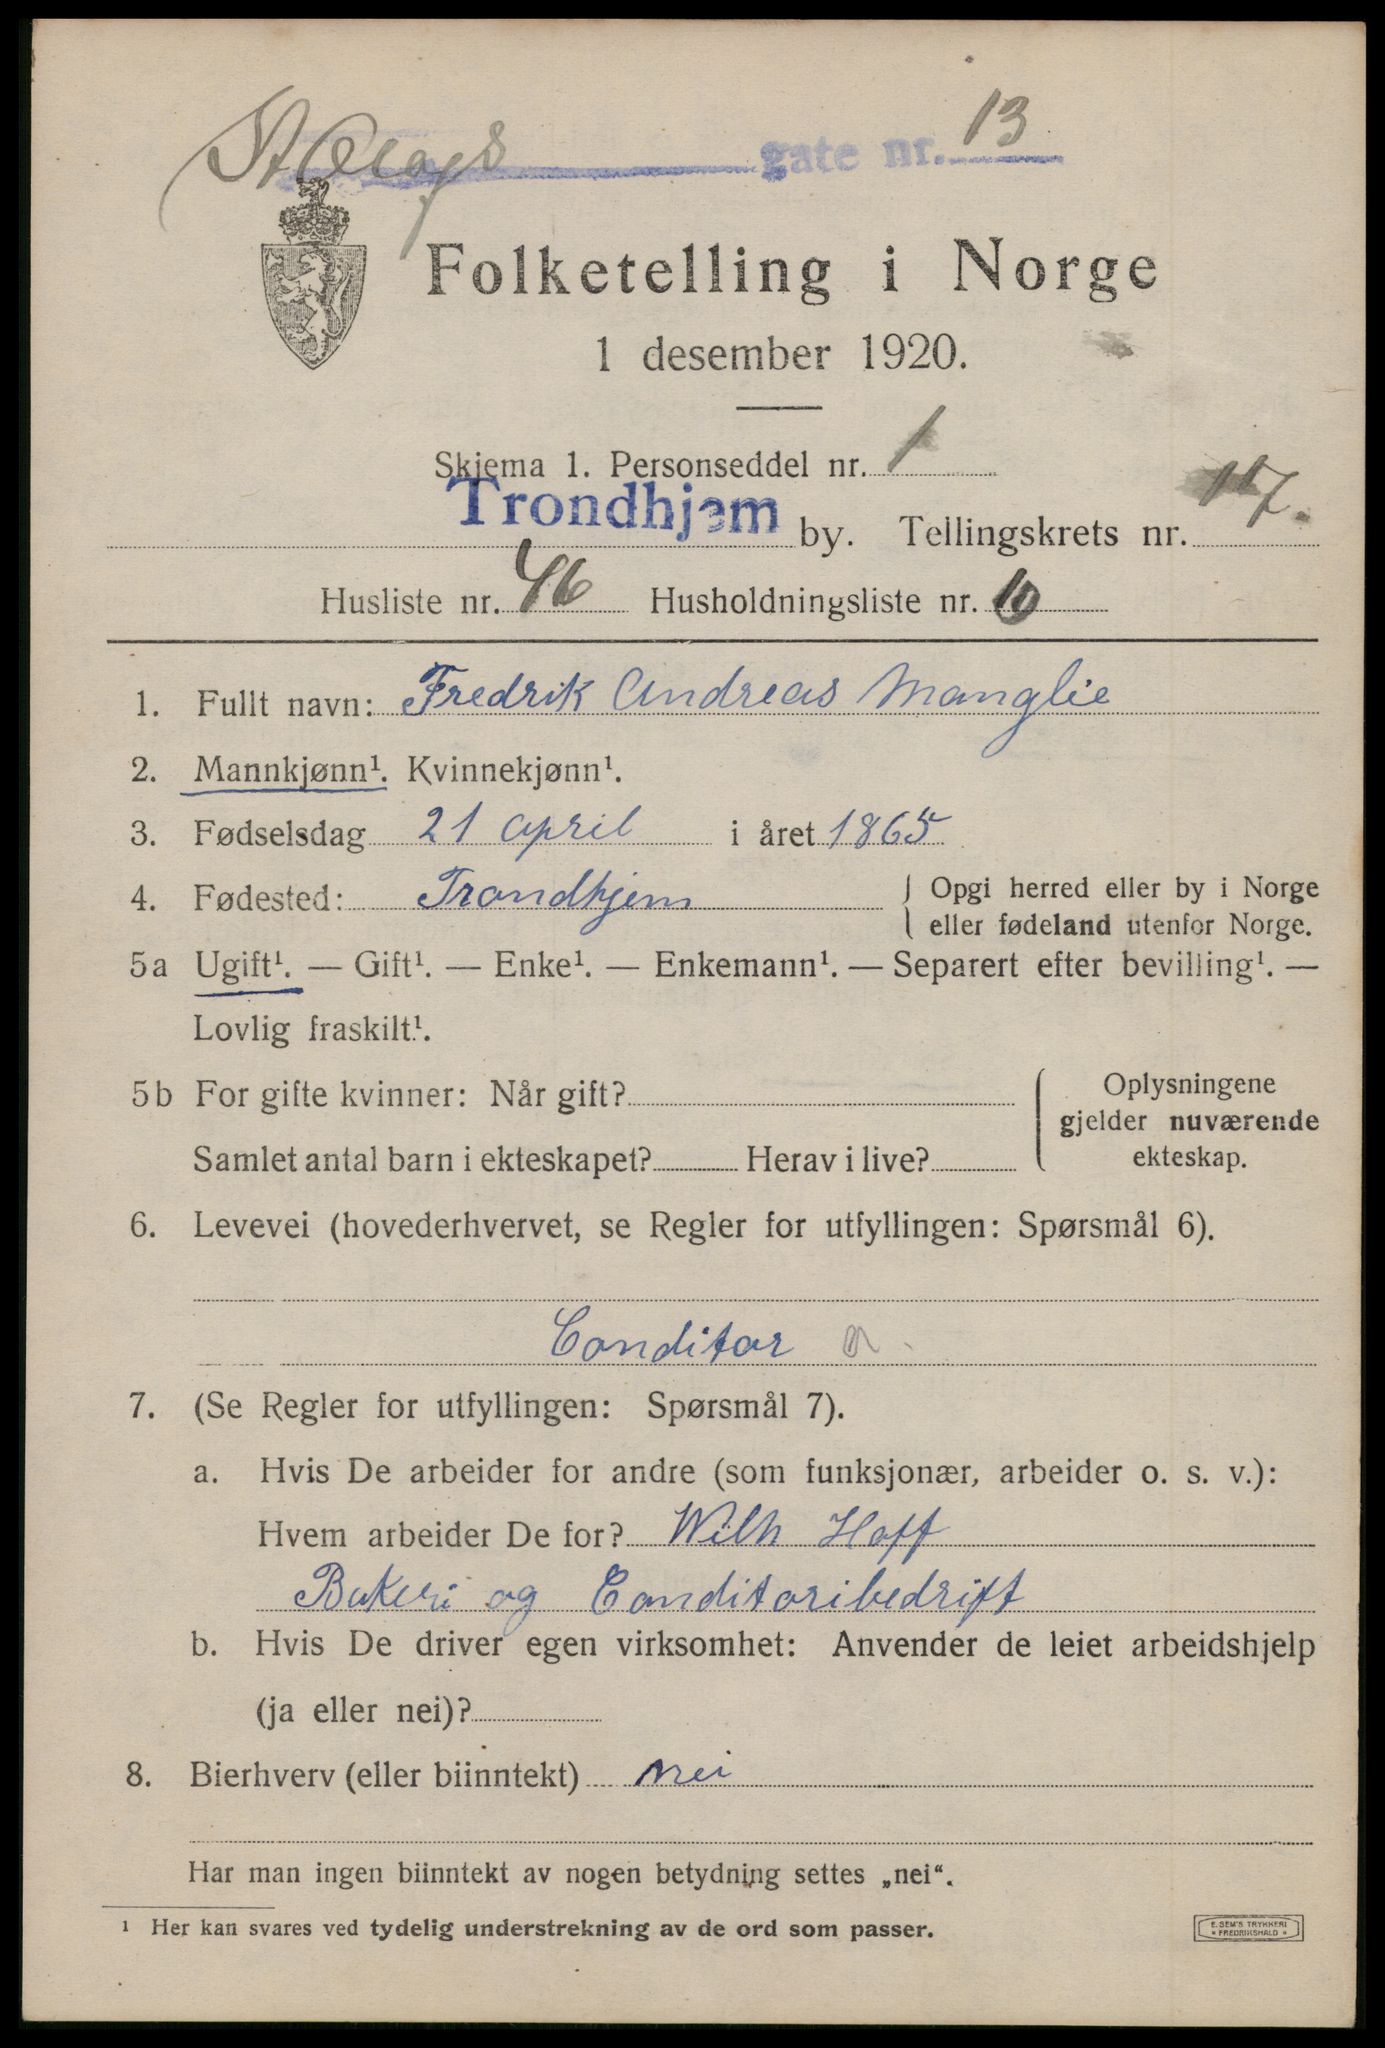 St Olafs gate nr. 13
Folketelling i Norge
1 desember 1920.
Skjema 1. Personseddel nr. 1
Trondhjem by. Tellingskrets nr. 17.
Husliste nr. 46 Husholdningsliste nr. 10
1. Fullt navn: Fredrik Andreas Manglie
2. Mannkjønn¹. Kvinnekjønn¹.
3. Fødselsdag 21 april i året 1865
4. Fødested: Trondhjem { Opgi herred eller by i Norge
eller fødeland utenfor Norge.
5a Ugift¹. — Gift¹. — Enke¹. — Enkemann¹. — Separert efter bevilling¹. —
Lovlig fraskilt¹.
5b For gifte kvinner: Når gift? { Oplysningene
gjelder nuværende
Samlet antal barn i ekteskapet? Herav i live? ekteskap.
6. Levevei (hovederhvervet, se Regler for utfyllingen: Spørsmål 6).
Conditor a
7. (Se Regler for utfyllingen: Spørsmål 7).
a. Hvis De arbeider for andre (som funksjonær, arbeider o. s. v.):
Hvem arbeider De for? Wilh Hoff
Bakeri og Conditoribedrift
b. Hvis De driver egen virksomhet: Anvender de leiet arbeidshjelp
(ja eller nei)?
8. Bierhverv (eller biinntekt) nei
Har man ingen biinntekt av nogen betydning settes „nei“.
¹ Her kan svares ved tydelig understrekning av de ord som passer.
E. SEM'S TRYKKERI
* FREDRIKSHALD *